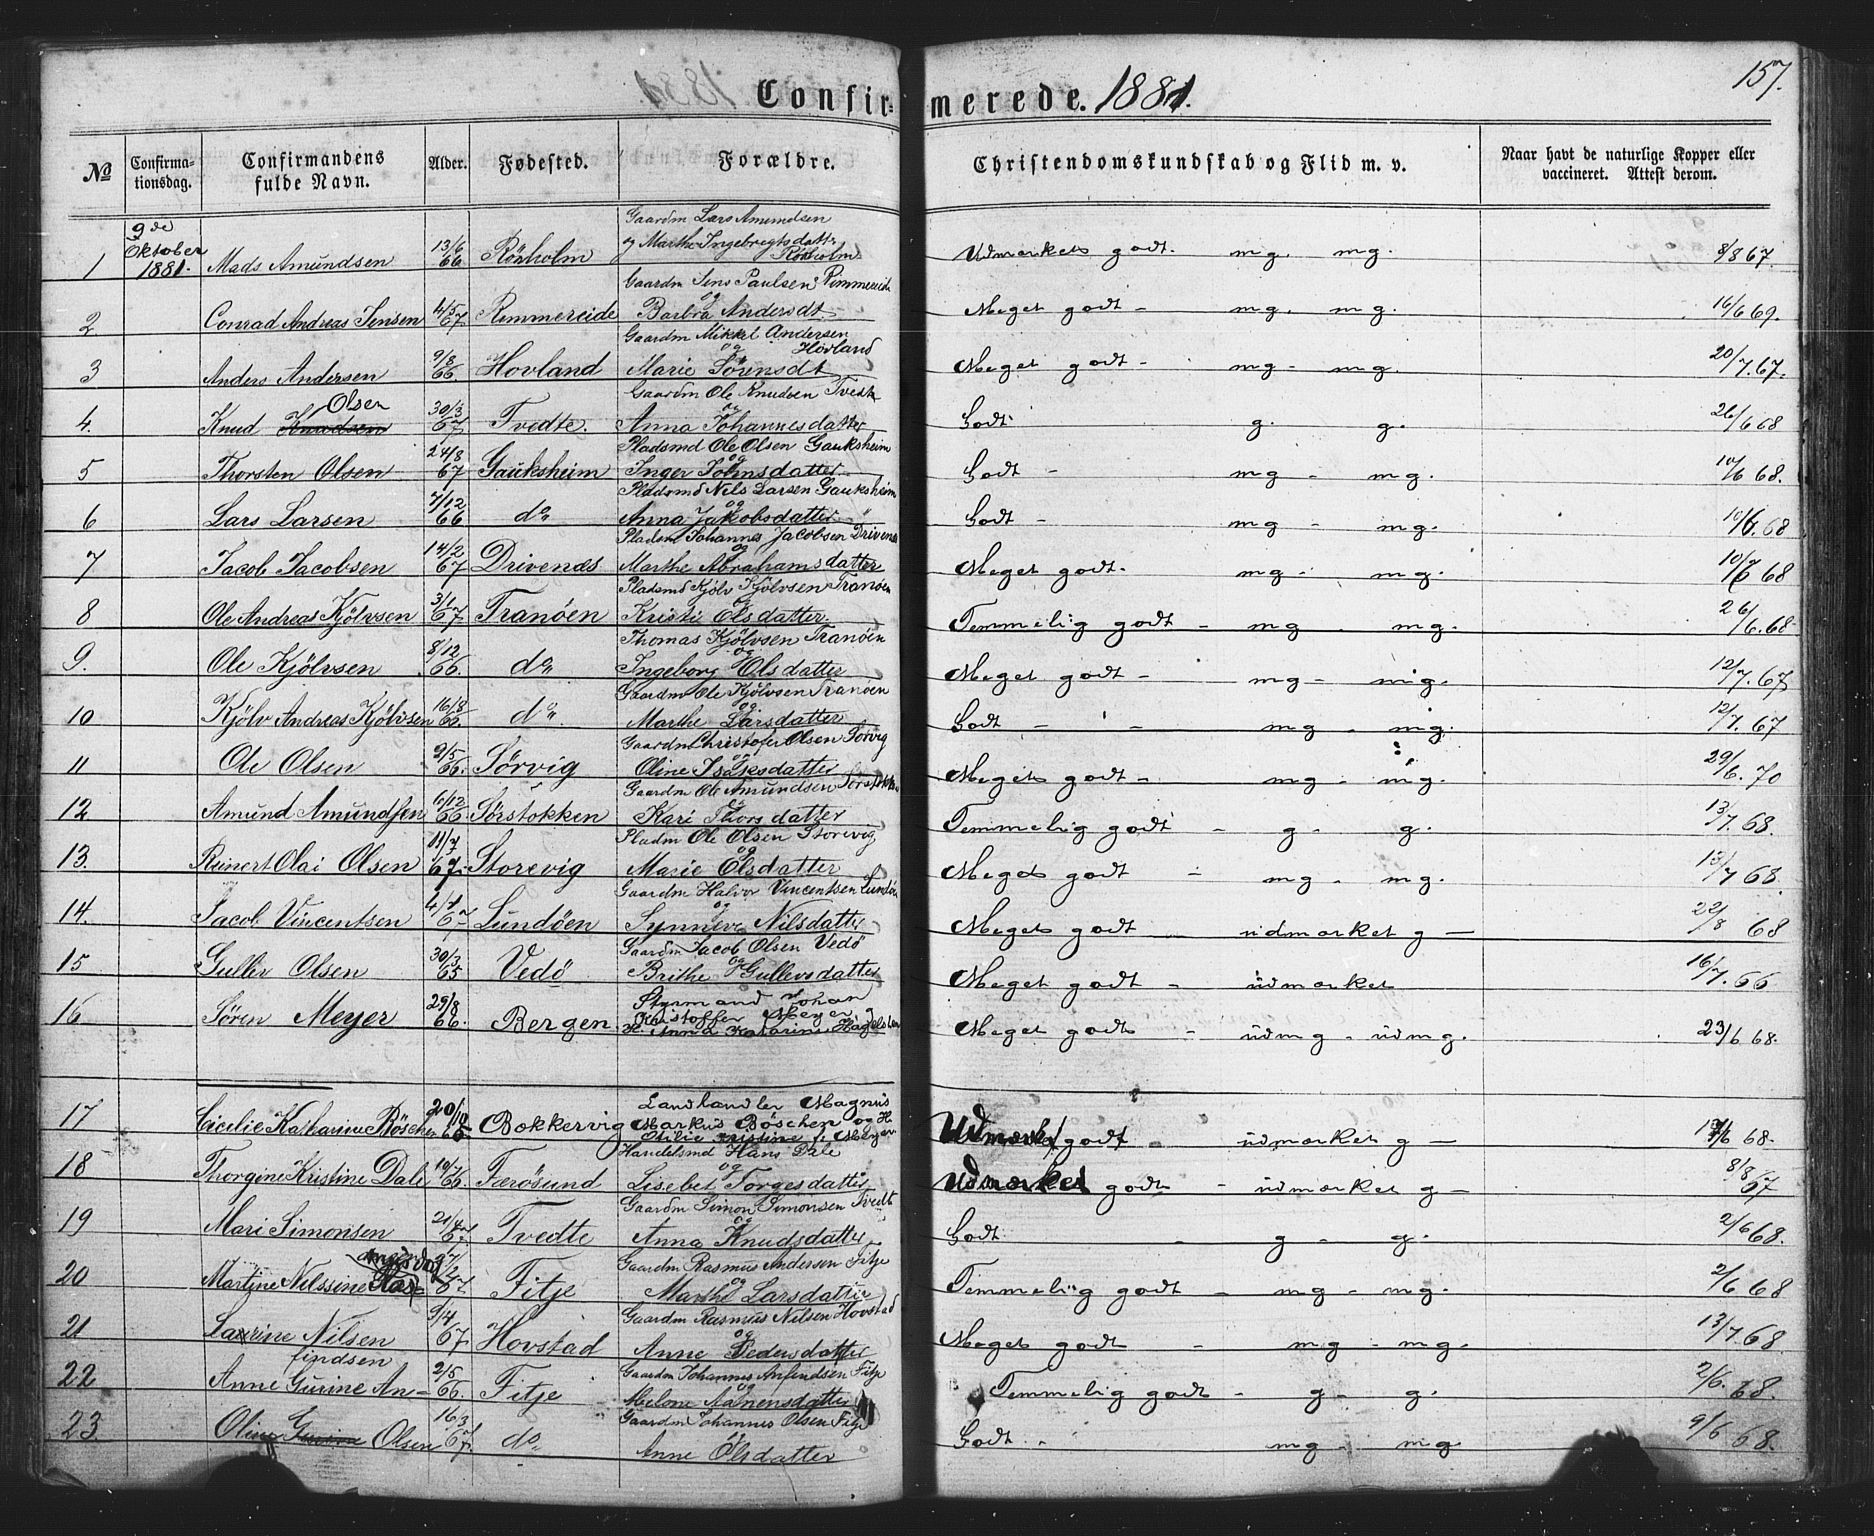 157.
Confir= merede. 1881.
No Confirma-tionsdag. Confirmandens fulde Navn. Alder. Fødested. Forældre. Christendomskundskab og Flid m. v. Naar havt de naturlige Kopper eller vaccineret. Attest derom.
9de Oktober 1881.
Gaardm Lars Amundsen
og Marthe Ingebregtsdatter
1 Mads Amundsen 13/6 66 Rönholm Rönholm Udmærkets godt. mg. mg. 8/8 67.
Gaardm Jens Paulsen Rimmereide
og
2 Conrad Andreas Jensen 4/5 67 Remmereide Barbra Andersdt Meget godt - mg. mg. 16/6 69.
Gaardm Mikkel Andersen
og Hovland
3 Anders Andersen 9/8 66. Hovland Marie Sörensdt Meget godt - mg - mg. 20/7. 67.
Gaardm Ole Knudsen Tvedte
Olsen og
4. Knud Knudsen 30/3 67 Tvedte. Anna Johannesdatter Godt g. g. 26/6 68
Pladsmd Ole Olsen Gauksheim
og
5 Thorsten Olsen 24/8 67 Gauksheim Inger Johnsdatter Godt - mg - mg. 10/6 68.
Pladsmd Nils Larsen Gauksheim
og
6 Lars Larsen 7/12 66 do Anna Jakobsdatter Godt - mg - mg. 10/6. 68
Pladsm Johannes Jacobsen Drivenæs
og
7 Jacob Jacobsen 14/2 67 Drivenæs Marthe Abrahamsdatter Meget godt. mg - mg. 10/6 68
Pladsmd Kjölv Kjölvsen Tranöen
og
8 Ole Andreas Kjölvsen 3/1 67 Tranöen Kristi Olsdatter Temmelig godt - mg mg. 26/6. 68-
Thomas Kjölvsen Tranöen
og
9. Ole Kjölvsen 8/12 66. do Ingeborg Olsdatter Meget godt - mg - mg. 12/7. 67
Gaardm Ole Kjölvsen Tranöen
og
10 Kjölv Andreas Kjölvsen 16/8 66. do Marthe Larsdatter Godt - - mg - mg. 12/7. 67
Gaardm Christofer Olsen Sörvig
og
11 Ole Olsen 9/5 66. Sörvig Oline Isaksdatter Megets godt - mg - mg. 29/6. 70
Gaardm Ole Amundsen Sörstokken
og
12 Amund Amundsen 6/12 66. Sörstokken Kari Thorsdatter Temmelig godt - g - g. 13/7. 68.
Pladm Ole Olsen Storevig
og
13. Reinert Olai Olsen 11/7 67. Storevig Marie Olsdatter Meget godt - mg - mg. 13/7 68.
Gaardm Halvor Vincentsen Lundöen
og
14. Jacob Vincentsen 4/1 67 Lundöen Synneve Nilsdatter Megets godt - udmærket g - 22/8 68
Gaardm Jacob Olsen Vedö
og
15 Guller Olsen 30/3 65 Vedö Brithe Gullersdatter Meget godt - udmærket 16/7. 66
Styrmand Johan
Kristoffer Meyer
16 Sören Meyer 29/8 66. Bergen H. Anna Katarina Hagelsten Meget godt - udmg - udmg. 23/6 68.
Landhandler Magnus
17 Cicilie Katharine Böschen 20/10 66 Bækkervig Markus Böschen og H. Udmærket godt - udmærket g - 17/6 68.
Otilie Kristine f. Meyer
Handelsmd Hans Dale
og
18 Thorgine Kristine Dale 10/7 66. Færösund Lisebet Torgesdatter Udmærket godt - udmærket g - 8/8 67
Gaardm Simon Simonsen Tvedt
og
19 Mari Simonsen 21/4 67 Tvedte Anna Knudsdatter Godt - g - g. 2/6 68.
Gaardm Rasmus Andersen Fitje
og
20 Martine Nilssine Ras= 27/2 67 Fitje Marthe Larsdatter Temmelig godt - mg - mg. 2/6 68
Gaardm Rasmus Nilsen Hovstad
og
21 Laurine Nilsen 9/4 67 Hovstad Anne Pedersdatter Meget godt - mg - mg. 13/7 68
findsen Gaardm Johannes Anfindsen Fitje
og
22 Anne Gurine An- 2/5 66. Fitje Melone Aanensdatter Temmelig godt - g - g. 2/6. 68.
Gaardm Johannes Olsen Fitje
og
23. Oline Gurine Olsen 16/3 67. do Anne Olsdatter Godt - mg - mg. 9/6 68.